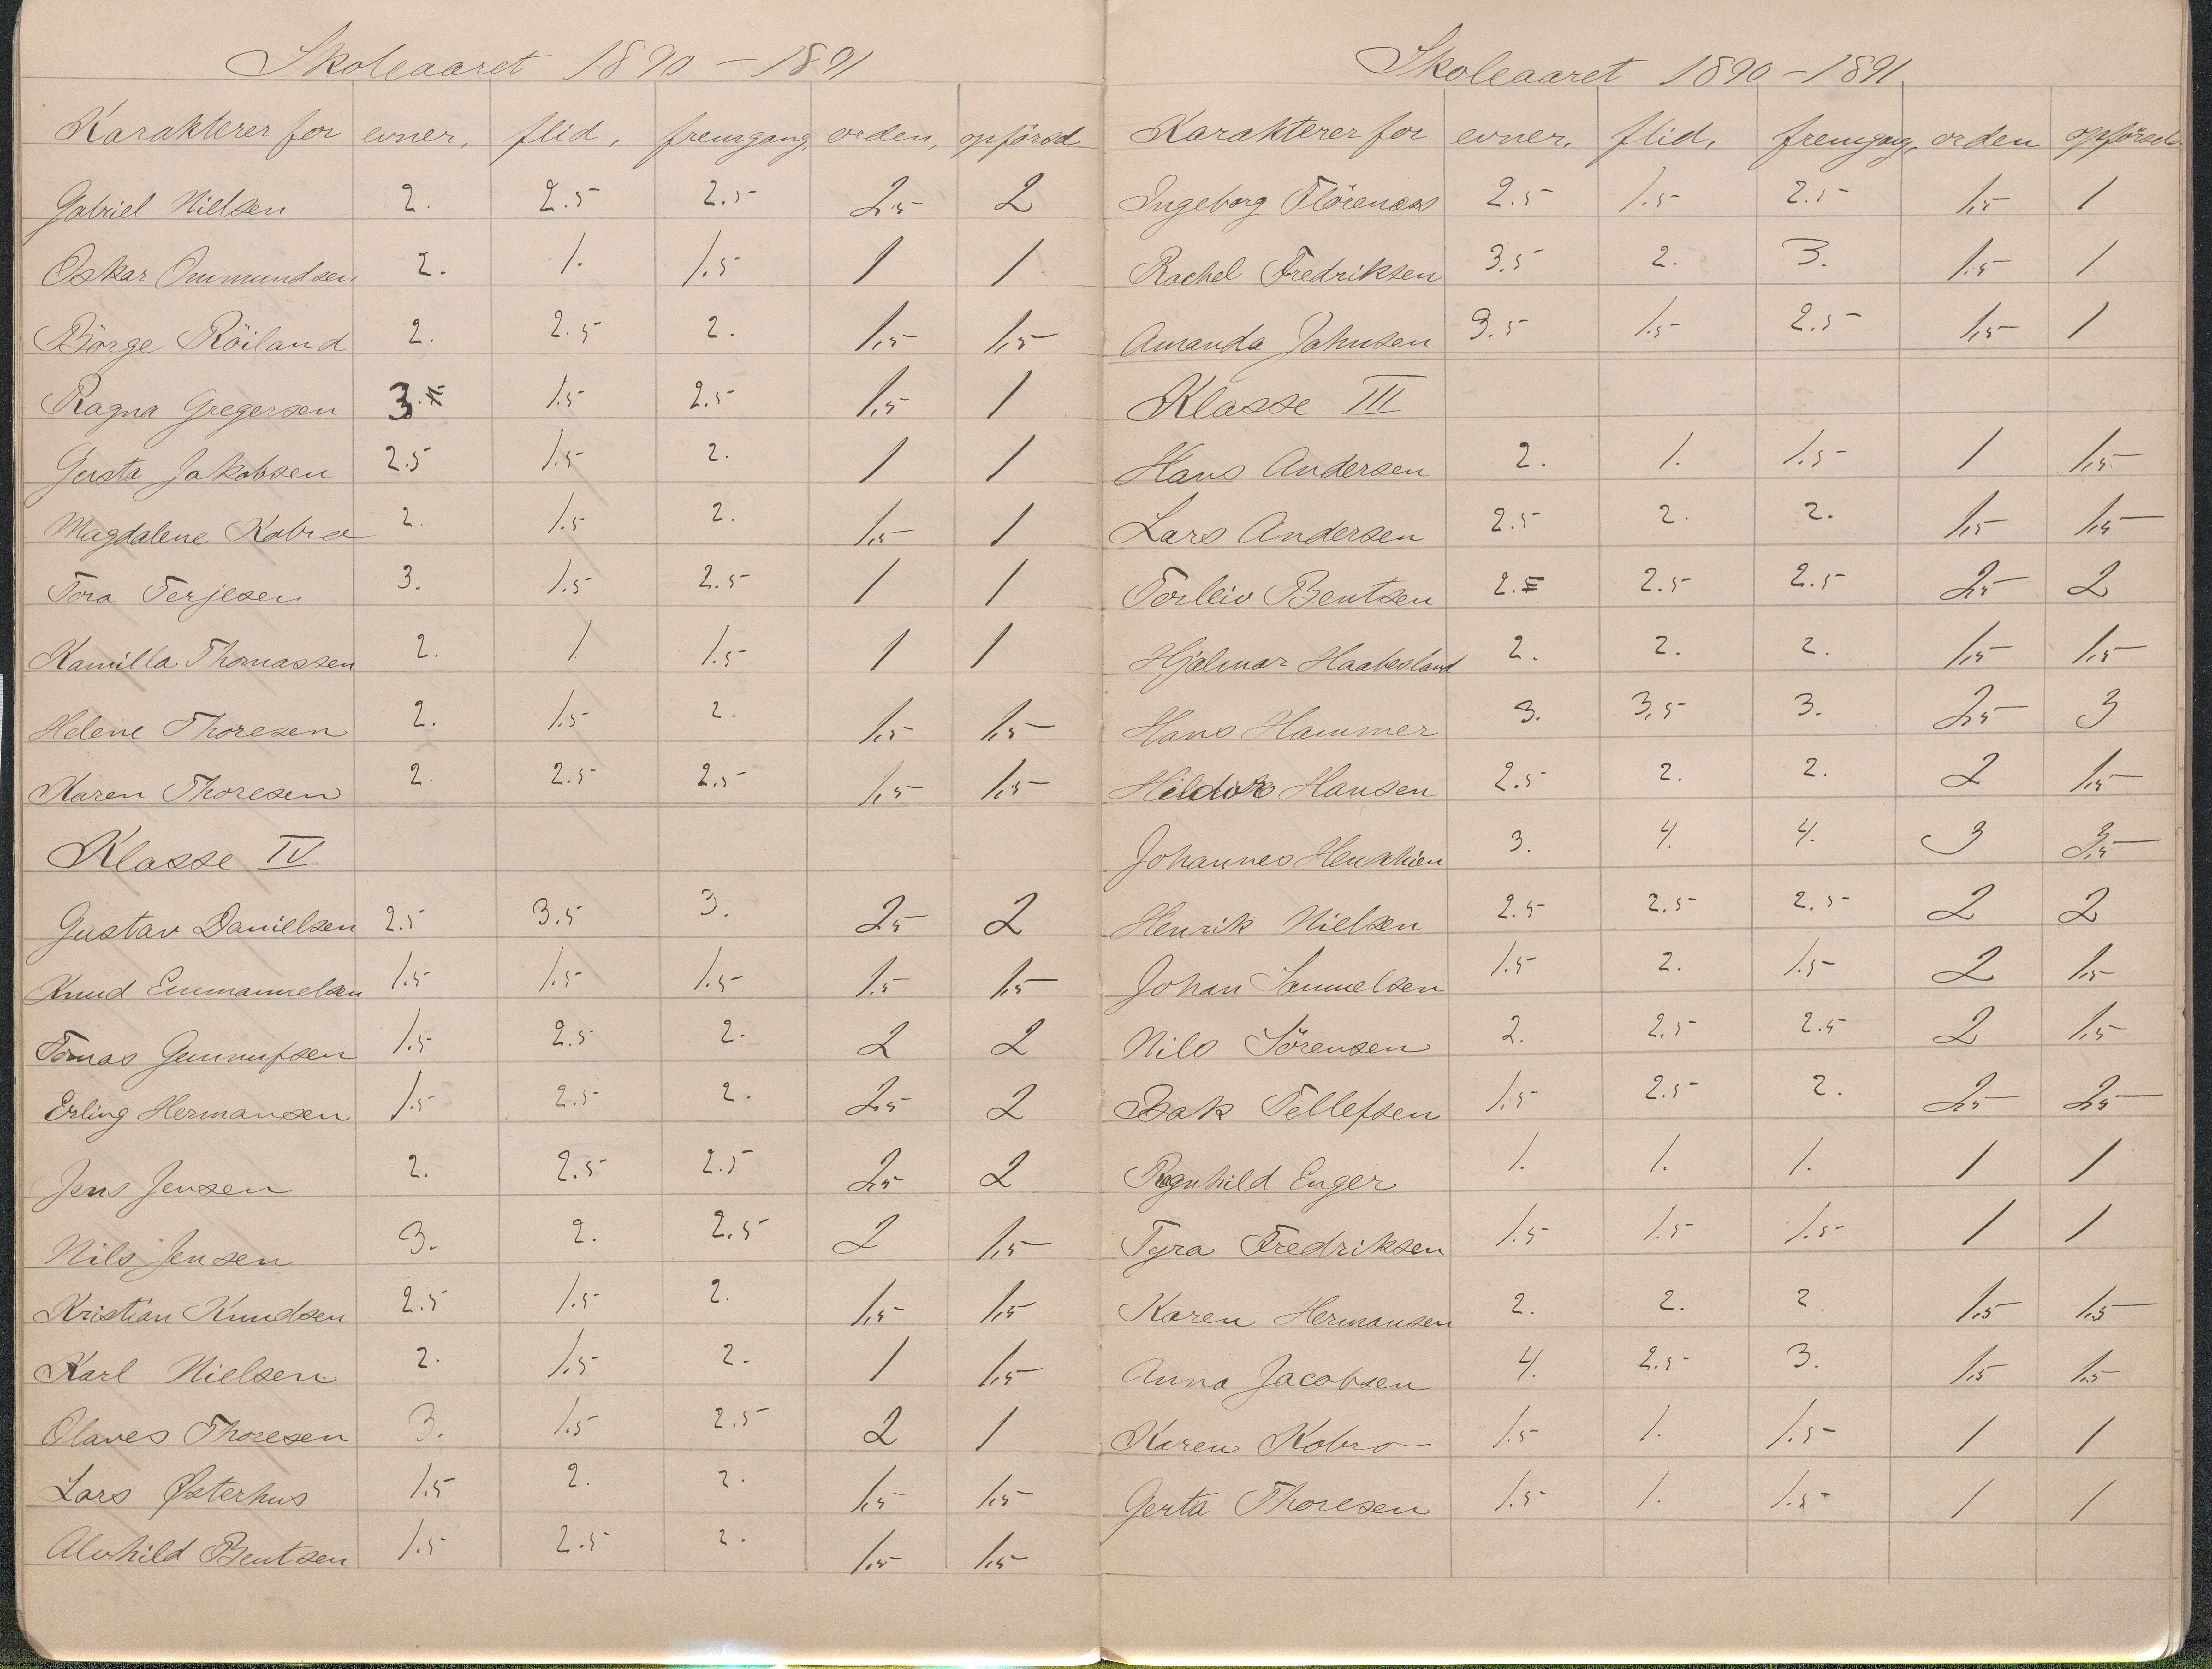 Skoleaaret 1890 – 1891
Karakterer for evner, flid, fremgang, orden, opförsel
Gabriel Nielsen 2. 2.5 2.5 2.5 2
Oskar Ommundsen 2. 1. 1.5 1 1
Börge Röiland 2. 2.5 2. 1,5 1,5
Ragna Gregersen 3. 1.5 2.5 1,5 1
Gusta Jakobsen 2.5 1.5 2. 1 1
Magdalene Kobro 2. 1.5 2. 1,5 1
Tora Terjesen 3. 1.5 2.5 1 1
Kamilla Thomassen 2. 1 1.5 1 1
Helene Thoresen 2. 1.5 2. 1,5 1,5
Karen Thoresen 2. 2.5 2.5 1,5 1,5
Klasse IV
Gustav Danielsen 2.5 3.5 3. 2,5 2
Knud Emmanuelsen 1.5 1.5 1.5 1.5 1.5
Tomas Gunnufsen 1.5 2.5 2. 2 2
Erling Hermansen 1.5 2.5 2. 2,5 2
Jens Jensen 2. 2.5 2.5 2,5 2
Nils Jensen 3. 2. 2.5 2 1,5
Kristian Knudsen 2.5 1.5 2. 1,5 1,5
Karl Nielsen 2. 1.5 2. 1 1,5
Olaves Thoresen 3. 1.5 2.5 2 1
Lars Østerhus 1.5 2. 2. 1,5 1,5
Alvhild Bentsen 1.5 2.5 2. 1,5 1,5
Skoleaaret 1890 – 1891
Karakterer for evner, flid, fremgang, orden opförsel
Ingeborg Flörenæs 2.5 1.5 2.5 1,5 1
Rachel Fredriksen 3.5 2. 3. 1.5 1
Amanda Jahnsen 3.5 1.5 2.5 1,5 1
Klasse III
Hans Andersen 2. 1. 1.5 1 1,5
Lars Andersen 2.5 2. 2. 1,5 1,5
Torleiv Bentsen 2.5 2.5 2.5 2,5 2
Hjalmar Haabesland 2. 2. 2. 1,5 1,5
Hans Hammer 3. 3,5 3. 2,5 3
Hildor Hansen 2.5 2. 2. 2 1,5
Johannes 3. 4. 4. 3 3,5
Henrik Nielsen 2.5 2.5 2.5 2 2
Johan Samuelsen 1.5 2. 1.5 2 1,5
Nils Sörensen 2. 2.5 2.5 2 1,5
Isak Tellefsen 1.5 2.5 2. 2,5 2,5
Ragnhild Enger 1. 1. 1. 1 1
Tyra Fredriksen 1.5 1.5 1.5 1 1
Karen Hermansen 2. 2. 2 1.5 1.5
Anna Jacobsen 4. 2.5 3. 1.5 1.5
Karen Kobro 1.5 1. 1.5 1 1
Gerta Thoresen 1.5 1. 1.5 1 1